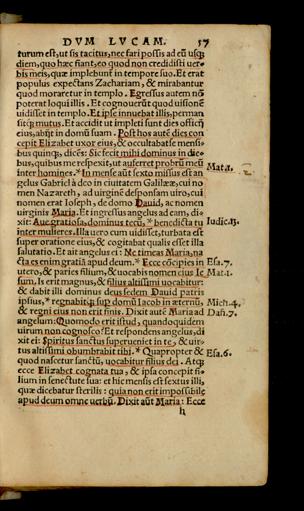 DVM LVCAM. 57
turum est, ut sis tacitus, nec fari possis ad eū usq;
diem, quo hæc fiant, eo quod non credidisti ver-
bis meis, quæ implebunt in tempore suo. Et erat
populus expectans Zachariam, & mirabantur
quod moraretur in templo. Egressus autem nō
poterat loqui illis. Et cognoverūt quod uisionē
uidisset in templo. Et ipse innuebat illis, perman
sitq; mutus. Et accidit ut impleti sunt dies officij
eius, abijt in domū suam. Post hos autē dies con-
cepit Elizabet uxor eius, & occultabat se mensi-
bus quinq;, dicēs: Sic fecit mihi dominus in die-
bus, quibus me respexit, ut auferret probrū meū
inter homines. * In mense aūt sexto missus est an Mat.1.
gelus Gabriel à deo in ciuitatem Galilææ, cui no
men Nazareth, ad uirginē desponsam uiro, cui
nomen erat Ioseph, de domo Dauid, ac nomen
uirginis Maria. Et ingressus angelus ad eam, di-
xit: Aue gratiosa, dominus tecū, * benedicta tu Iudic.13.
inter mulieres. Illa uero cum uidisset, turbata est
super oratione eius, & cogitabat qualis esset illa
salutatio. Et ait angelus ei: Ne timeas Maria, na
cta es enim gratiā apud deum. * Ecce cōcipies in Esa.7.
utero, & paries filium, & uocabis nomen eius Ie Mat.1.
sum. Is erit magnus, & filius altissimi uocabitur:
& dabit illi dominus deus sedem Dauid patris
ipsius, * regnabitq; sup domū Iacob in æternū, Mich.4.
& regni eius non erit finis. Dixit autē Maria ad Dañ.7.
angelum: Quomodo erit istud, quandoquidem
uirum non cognosco? Et respondens angelus, di
xit ei: Spiritus sanctus superueniet in te, & uir-
tus altissimi obumbrabit tibi. * Quapropter & Esa.6.
quod nascetur sanctū, uocabitur filius dei. Atq;
ecce Elizabet cognata tua, & ipsa concepit fi-
lium in senectute sua: et hic mensis est sextus illi,
quæ dicebatur sterilis: quia non erit impossibile
apud deum omne verbū. Dixit aūt Maria: Ecce
h